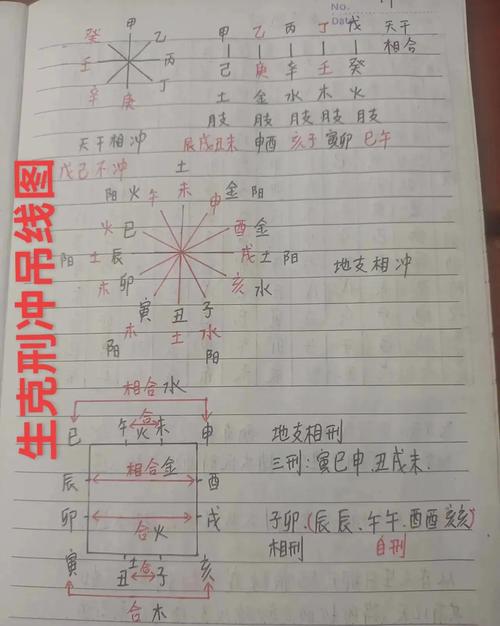 No.
Date
甲
癸 乙
壬 丙
辛 丁
庚
甲 乙 丙 丁 戊 天干
相合
己 庚 辛 壬 癸
土 金 水 木 火
月支 月支 月支 月支 月支
天干相冲 辰戌丑未 申酉 亥子 寅卯 巳午
戊己不冲
土
阳 火 午 未 申 金 阳
火 巳 酉 金
阳 土 辰 戌 土 阳
木 卯 亥 水
地支相冲
寅 丑 子
木 土 水
阳 阳
生克刑冲吊线图
相合水
巳 午 合火 未 申
地支相刑
三刑:寅巳申.丑戌未.
辰 相合金 酉
卯 合火 戌
子卯.(辰辰、午午.酉酉亥亥)
相刑 自刑
寅 丑 土合 子 亥
合木